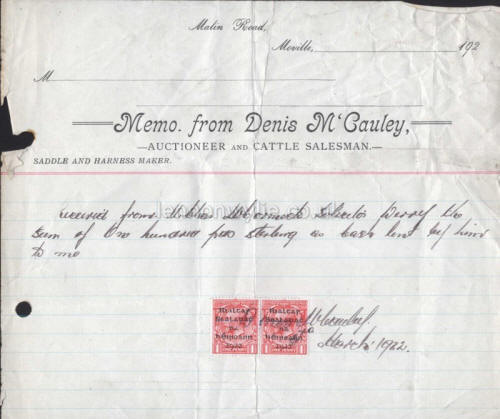 Malin Road,
Moville, 192
M
Memo. from Denis M‘Cauley,
AUCTIONEER AND CATTLE SALESMAN.
SADDLE AND HARNESS MAKER.
received from McCormack Solicitor Derry the
Sum of One hundred pds sterling as cash lent by him
to me
Rialtas Rialtas
Sealadac Sealadac
na na
hÉireann hÉireann
1922 1922
March 1922.